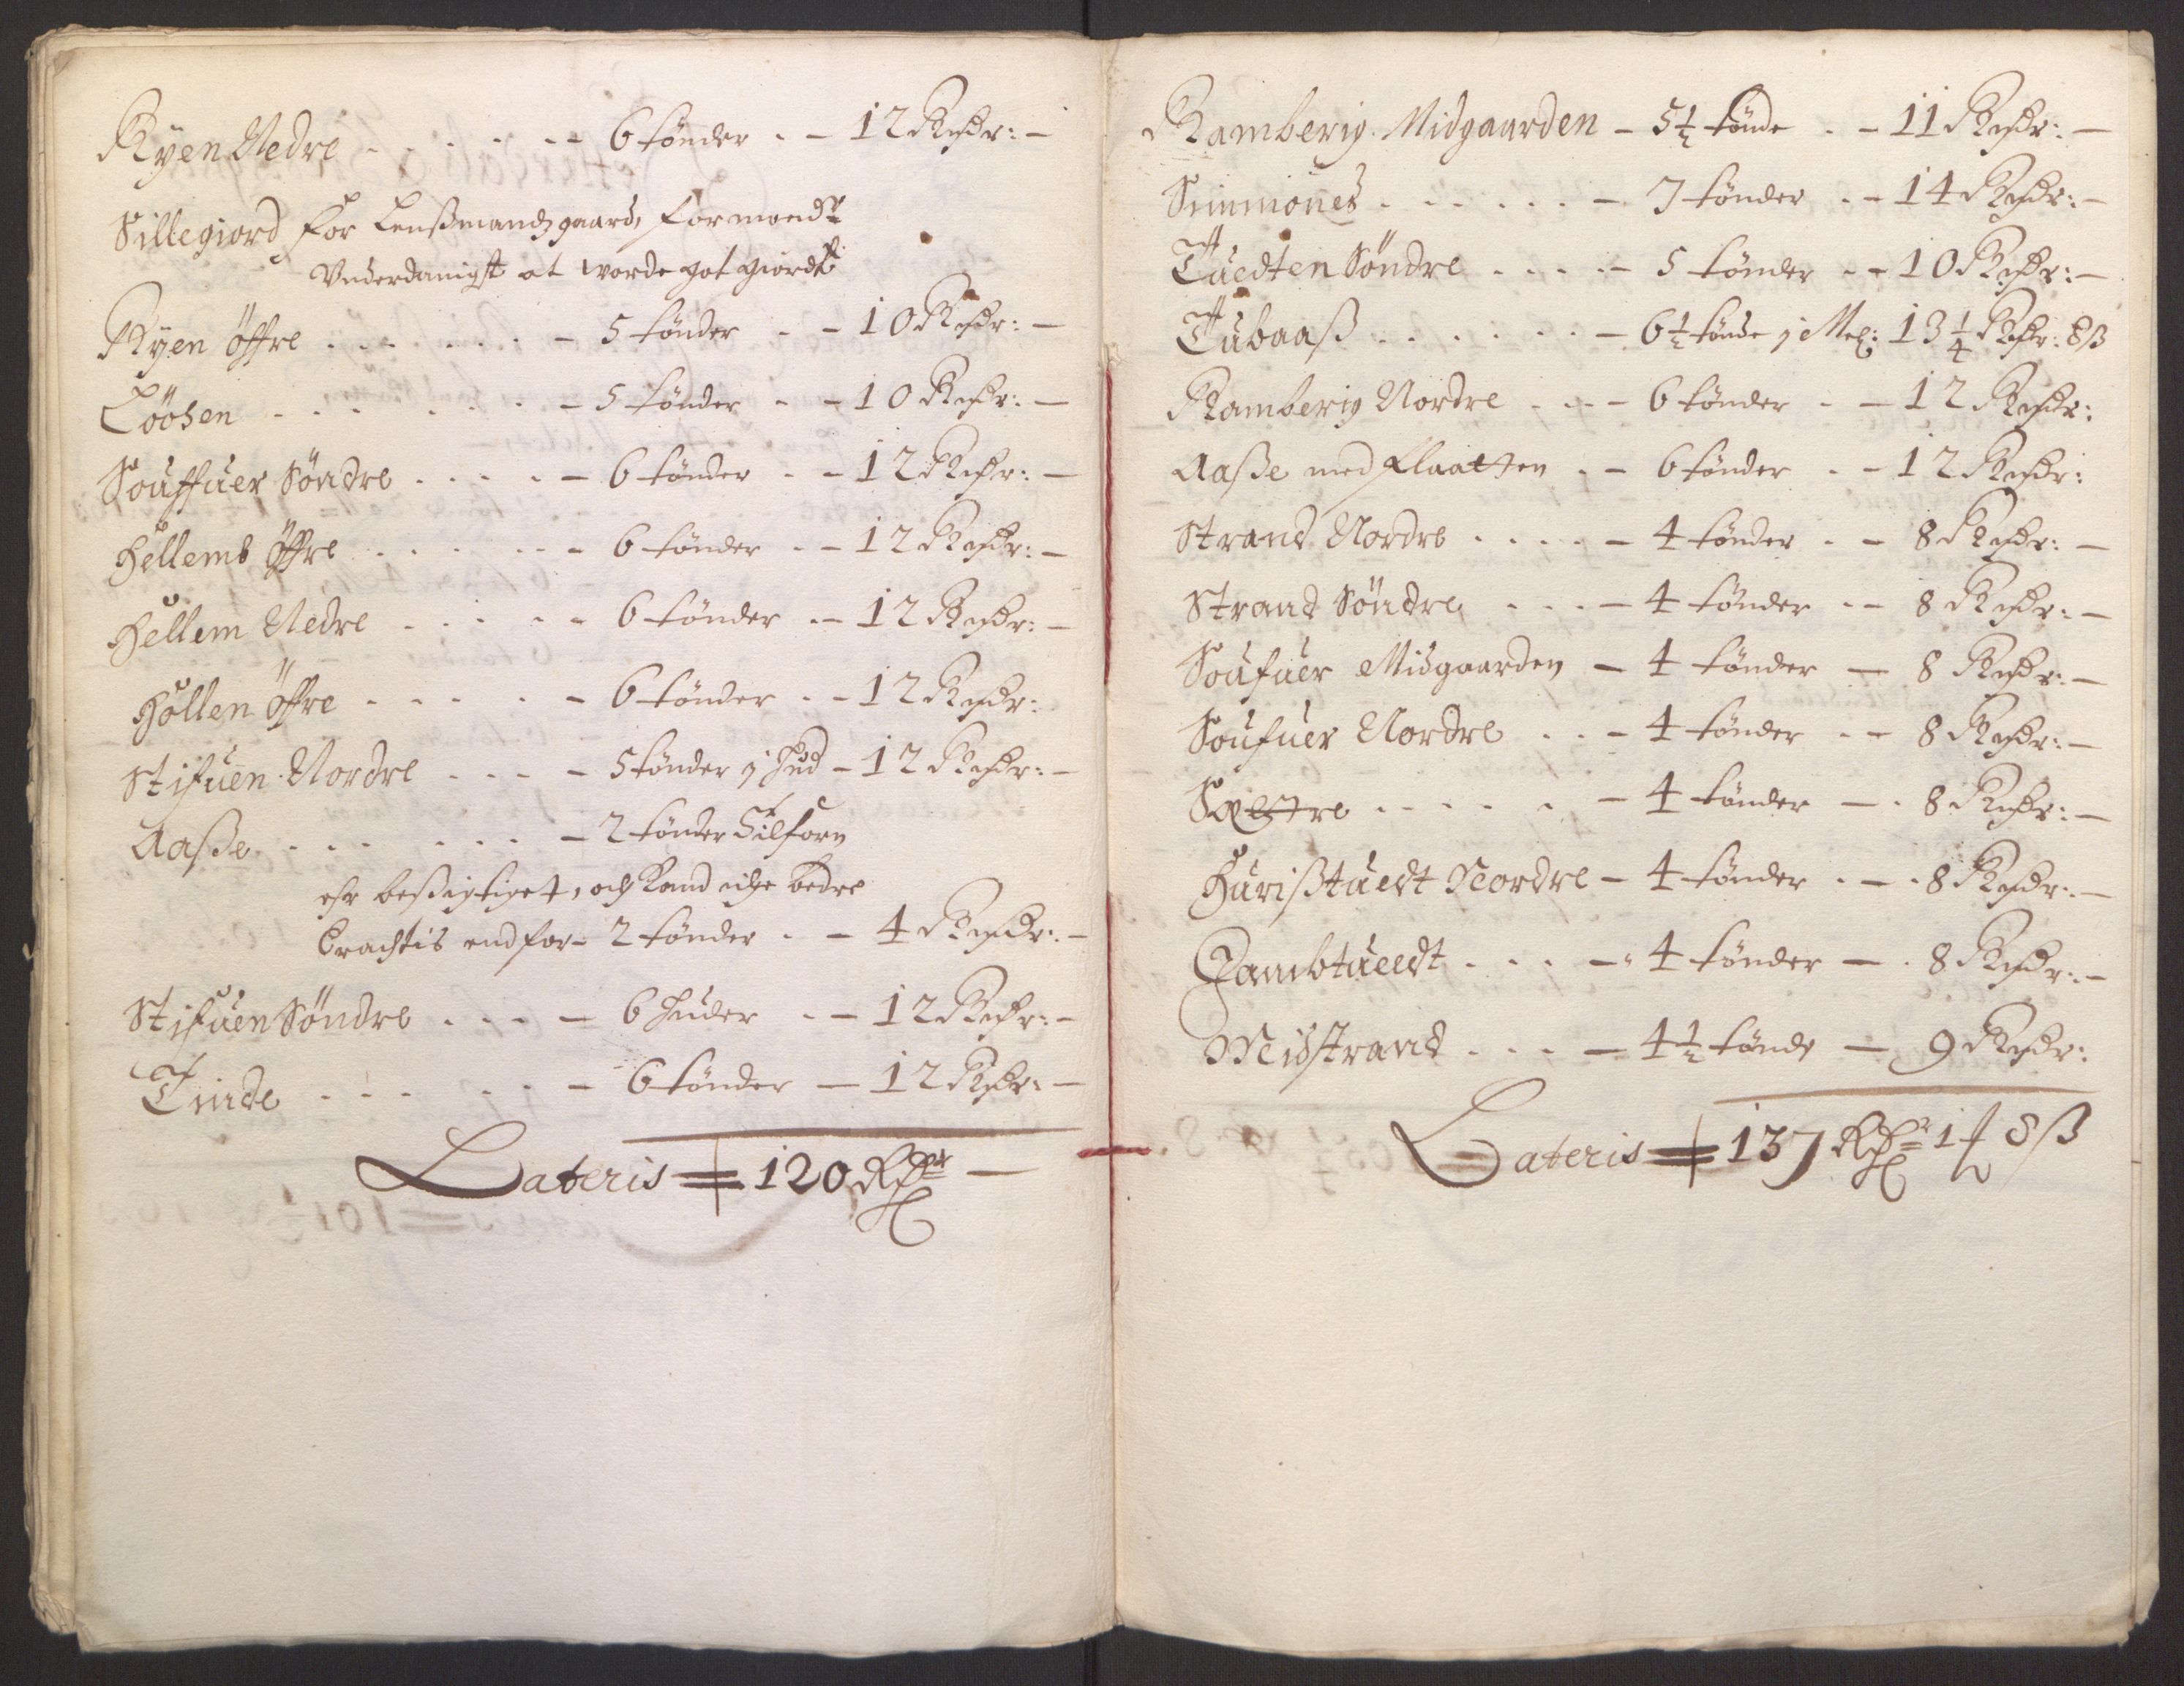 Ryen Nedre - - - - - - 6 tønder - - 12 Rixdr: -
Sillegiord for Lenßmandz gaard, formeendt
Underdanigst at worde got giordt
Ryen Öffre - - - - - - 5 tønder - - 10 Rixdr: -
Löösen - - - - - - - 5 tønder - - 10 Rixdr: -
Souffuer Söndre - - - - - 6 tønder - - 12 Rixdr: -
Hellemb Öffre - - - - - - 6 tønder - - 12 Rixdr: -
Hellem Nedre - - - - - 6 tønder - - 12 Rixdr: -
Hollen Öffre - - - - - 6 tønder - - 12 Rixdr:
Stifuen Nordre - - - - 5 tønder j Hud - 12 Rixdr: -
Aaße - - - - - - - 2 tønder
ehr beßigtiget, och kand icke bedre
Erachtis end for - 2 tønder - - 4 Rixdr: -
Stifuen Söndre - - - - 6 Huder - - 12 Rixdr: -
Tinde - - - - - - 6 tønder - 12 Rixdr: -
Lateris = 120 Rdr -
Ramberig Midgaarden - 5½ tønde - - 11 Rixdr: -
Simmones - - - - - - 7 tønder - - 14 Rixdr: -
Tuedten Söndre - - - - - 5 tønder - - 10 Rixdr: -
Tubaaß - - - - - - 6½ tønde j Mel: 13¼ Rixdr: 8 ß
Ramberig Nordre - - - 6 tønder - - 12 Rixdr:
Aaße med Flaatten - - 6 tønder - - 12 Rixdr:
Strand Nordre - - - - - 4 tønder - - 8 Rixdr: -
Strand Söndre - - - - 4 tønder - - 8 Rixdr: -
Soufuer Midgaarden - 4 tønder - 8 Rixdr: -
Soufuer Nordre - - - 4 tønder - - 8 Rixdr: -
Sættre - - - - - - 4 tønder - - 8 Rixdr: -
Hurißtuedt Nordre - 4 tønder - - 8 Rixdr: -
Jambtuedt - - - - 4 tønder - - 8 Rixdr: -
Midstrand - - - - 4½ tønde - 9 Rixdr:
Lateris = 137 Rdr 1 8 ß